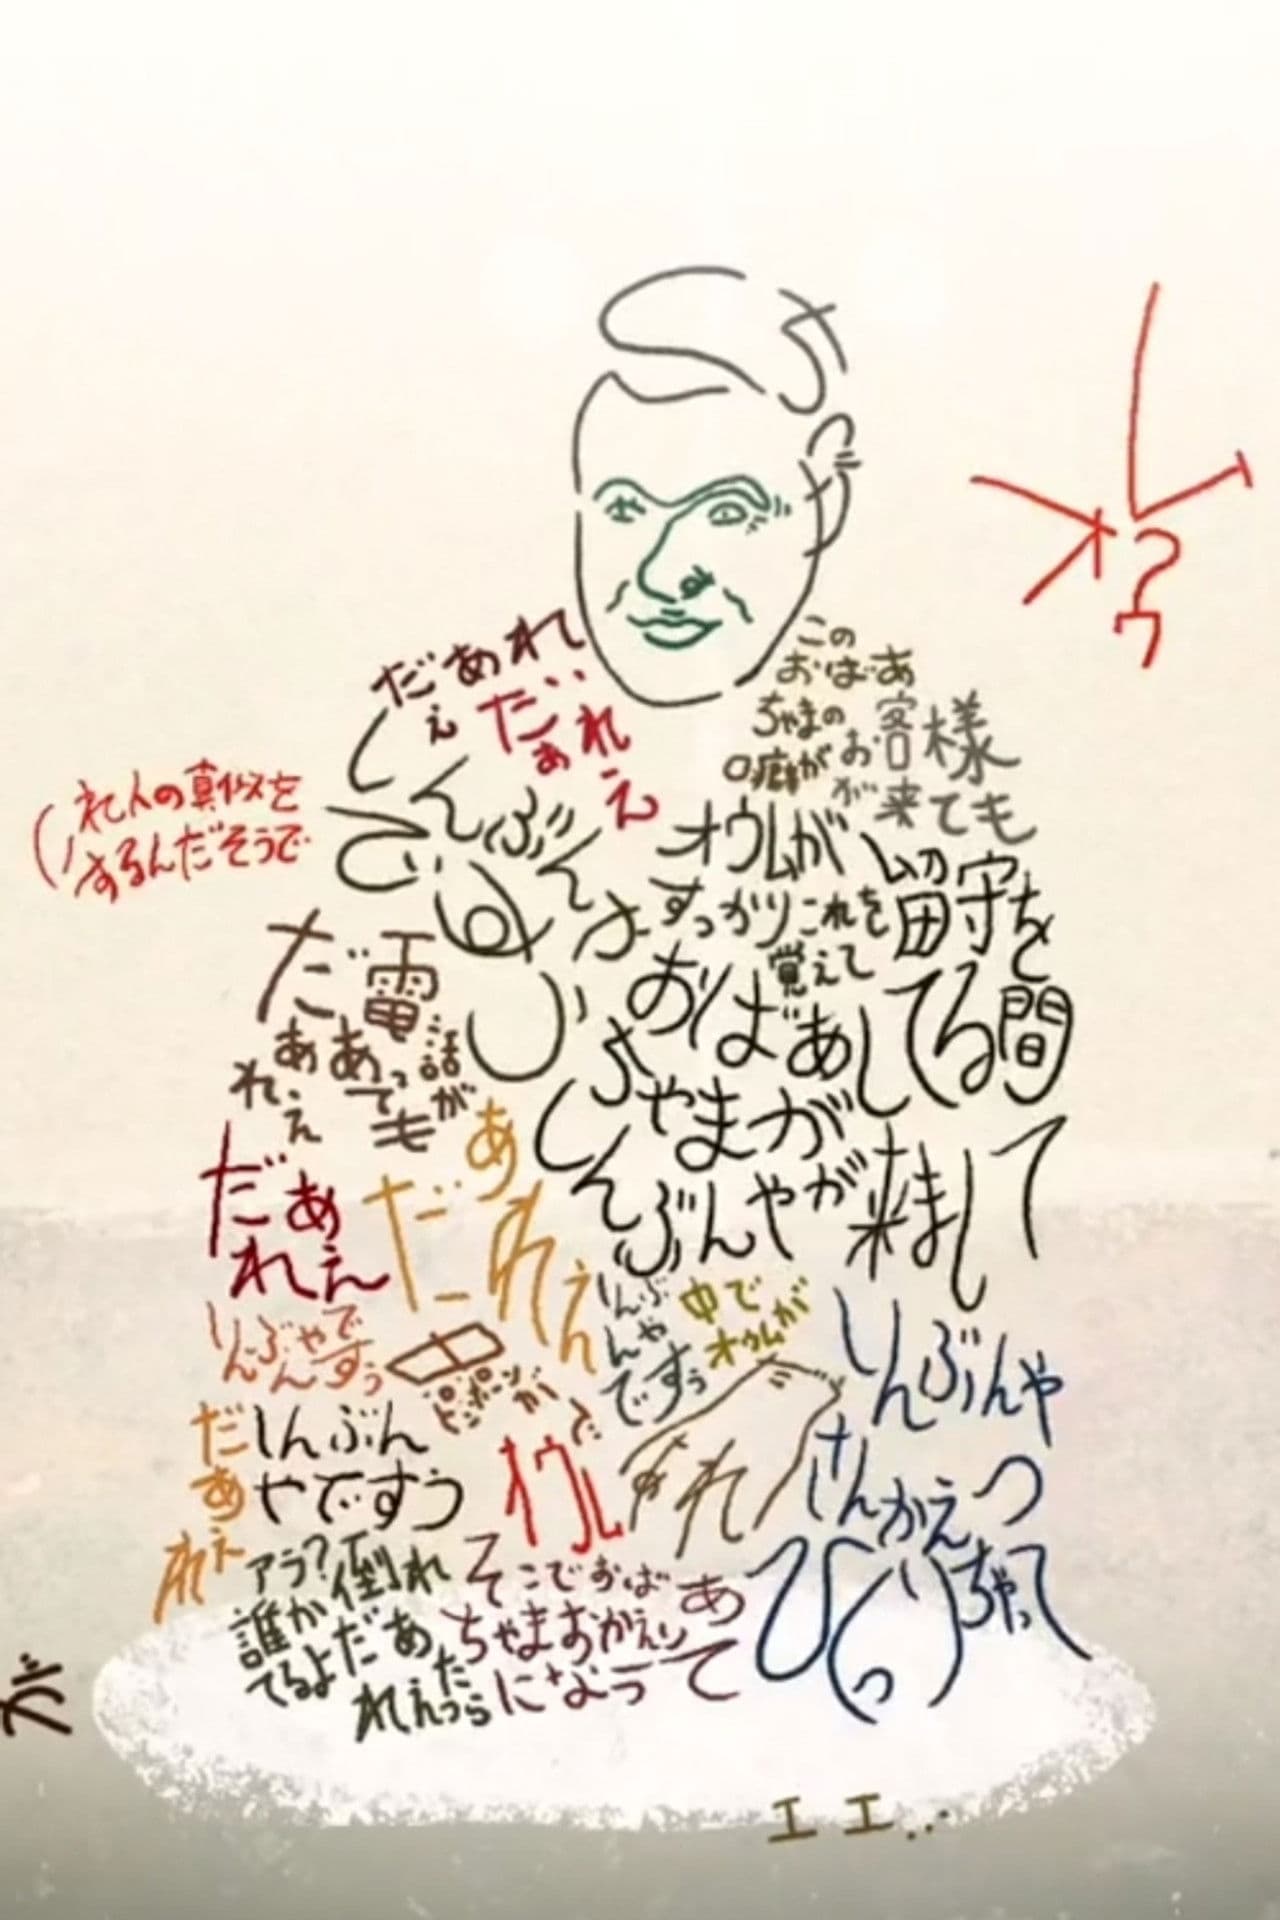 オウ
ム
ウ
（人の真似を
するんだそうで
だあれ
え
だあれえ
この
おばあ
ちゃまの
口癖が
お客様
が来ても
電話が
あっても
だあ
れえ
オウムが
すっかりこれを
覚えて
おばあ
ちゃまが
留守を
してる間
しんぶんやが来まして
だあ
れえ
だあれえ
しんぶんやで
すぅ
ピンポーンが
しんぶ
んや
ですぅ
中で
オウムが
だあ
れえ
しんぶん
やですう
だれ
しんぶんや
さんかえっ
ちゃって
びっくり
そこでおばあ
ちゃまおかえり
になって
アラ？
誰か倒れ
てるよ
だあ
れえったら
が
エエ..